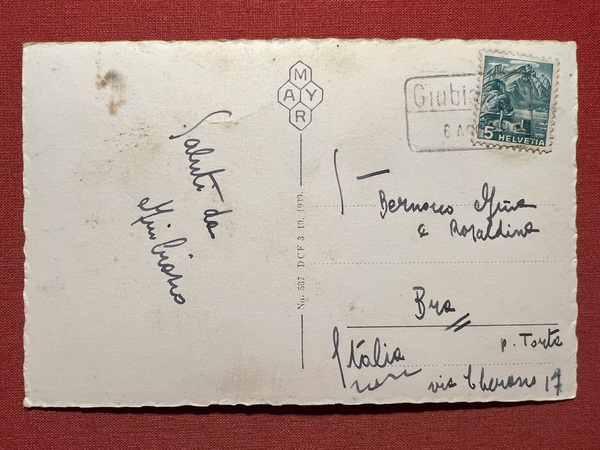 Saluti da
Giubiasco
MAYR
No. 587 DCF 3. 10. 1939.
Giubia
6 AG
5 HELVETIA
Bernocco Gina
e Rosaldina
Bra
p. Torta
Italia
via Cherasco 17